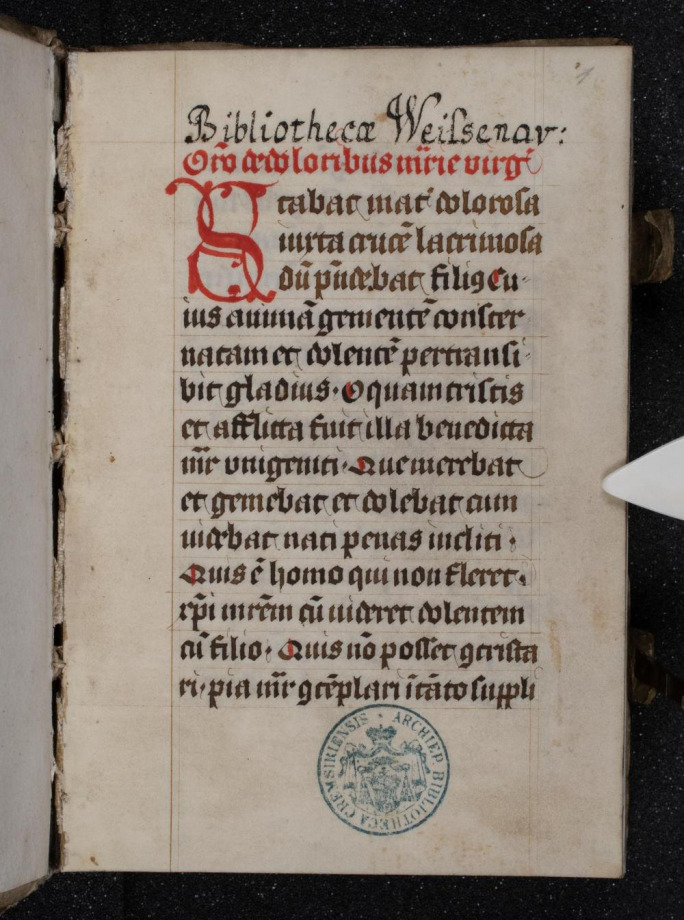 1
Bibliothecæ Weiſsenav:
Oro de doloribus mrīe virgī
Stabat mat̄ doloroſa
iuxta crucē lacrimoſa
dū pn̄debat filiꝰ Cu-
ius animā gementē conſter
natam et dolentē pertranſi-
bit gladius· O quam triſtis
et afflicta fuit illa benedicta
mr̄ vnigeniti· Que merebat
et gemebat et dolebat cum
uidebat nati penas incliti·
Quis ē homo qui non fleret·
xp̄i mrēm cū uideret dolentem
cū filio· Quis nō poſſet ꝯtriſta
ri· pia mr̄ ꝯtēplari ī tāto ſuppli
ARCHIEP BIBLIOTHECA CREMSIRIENSIS